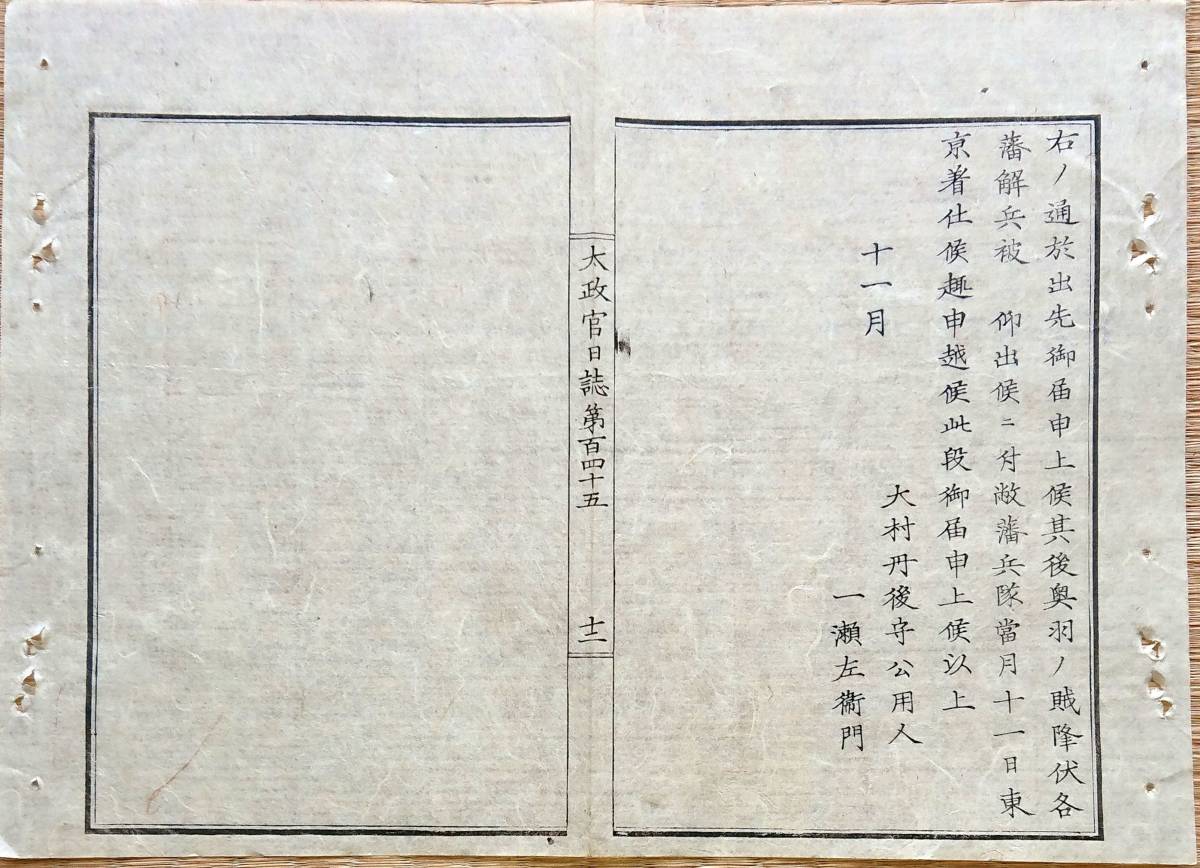 右ノ通於出先御届申上候其後奥羽ノ賊降伏各
藩解兵被　仰出候ニ付敝藩兵隊當月十一日東
京着仕候趣申越候此段御届申上候以上
十一月
大村丹後守公用人
一瀬左衞門
太政官日誌第百四十五
十二